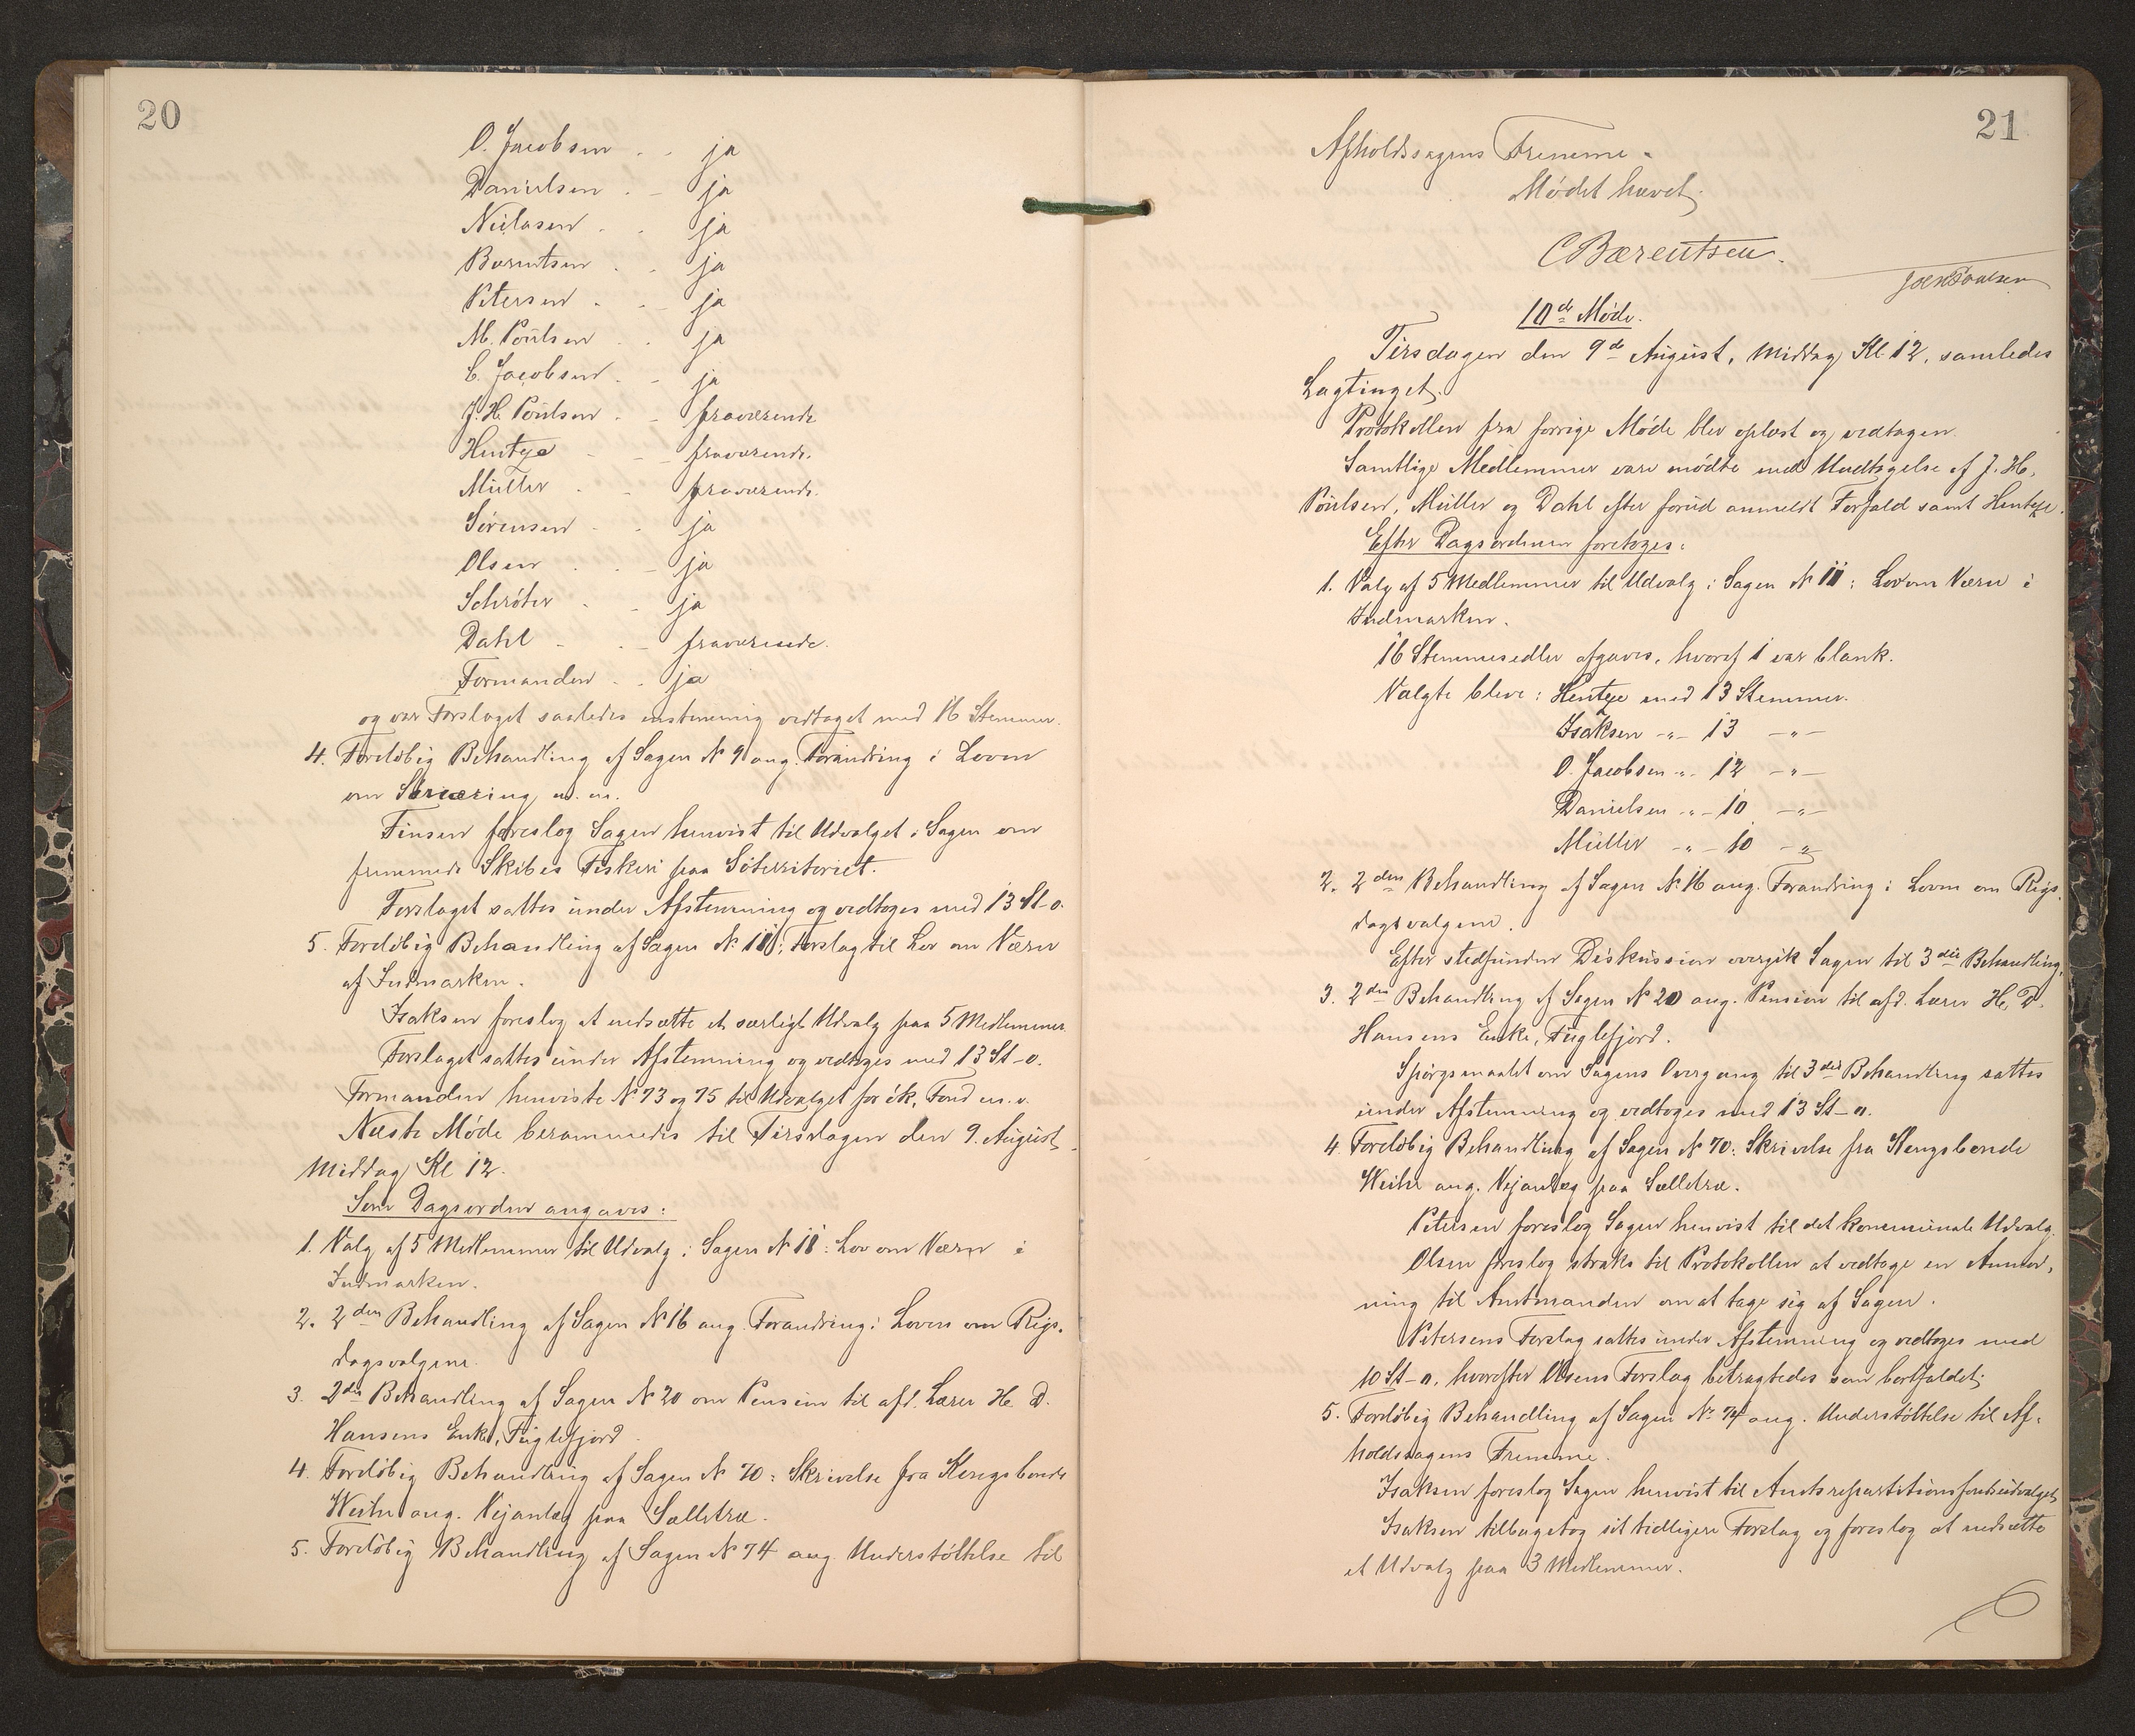 20
O. Jacobsen . . ja
Danielsen . – ja
Niclasen . . ja
Bærentsen . . ja
Petersen . – ja
M. Poulsen . . ja
C. Jacobsen . – ja
J. H. Poulsen . – fraværende
Hentze – – fraværende.
Müller . – fraværende.
Sørensen – . ja
Olsen . . – ja
Schrøter . – ja
Dahl – . – fraværende.
Formanden . . ja
og var Forslaget saaledes enstemmig vedtaget med 16 Stemmer.
4. Foreløbig Behandling af Sagen № 9 ang. Forandring i Loven
om Servering m. m.
Finsen foreslog Sagen henvist til Udvalget i Sagen om
fremmede Skibes Fiskeri paa Søterritoriet.
Forslaget sattes under Afstemning og vedtoges med 13 St–o.
5. Foreløbig Behandling af Sagen № 11; Forslag til Lov om Værn
af Indmarken.
Isaksen foreslog at nedsætte et særligt Udvalg paa 5 Medlemmer
Forslaget sattes under Afstemning og vedtoges med 13 St–o.
Formanden henviste № 73 og 75 til Udvalget for øk. Fond m. v.
Næste Møde berammedes til Tirsdagen den 9. August
Middag Kl 12.
Som Dagsorden angaves:
1. Valg af 5 Medlemmer til Udvalg i Sagen № 11: Lov om Værn i
Indmarken.
2. 2den Behandling af Sagen № 16 ang. Forandring i Loven om Rigs-
dagsvalgene.
3. 2den Behandling af Sagen № 20 om Pension til afd. Lærer H. D.
Hansens Enke, Fuglefjord
4. Foreløbig Behandling af Sagen № 70: Skrivelse fra Kongsbonde
Weihe ang. Vejanlæg paa Sælletræ.
5. Foreløbig Behandling af Sagen № 74 ang. Understøttelse til
21
Afholdssagens Fremme.
Mødet hævet.
C Bærentsen.
J H Poulsen
10de Møde.
Tirsdagen den 9de August, Middag Kl 12, samledes
Lagtinget.
Protokollen fra forrige Møde blev oplæst og vedtagen.
Samtlige Medlemmer vare mødte med Undtagelse af J. H.
Poulsen, Müller og Dahl efter forud anmeldt Forfald samt Hentze.
Efter Dagsordenen foretoges:
1. Valg af 5 Medlemmer til Udvalg i Sagen № 11: Lov om Værn i
Indmarken.
16 Stemmesedler afgaves, hvoraf 1 var blank.
Valgte bleve: Hentze med 13 Stemmer.
Isaksen –"– 13 –"–
O. Jacobsen –"– 12 –"–
Danielsen –"– 10 –"–
Müller –"– 10 –"–
2. 2den Behandling af Sagen № 16 ang. Forandring i Loven om Rigs-
dagsvalgene.
Efter stedfunden Diskussion overgik Sagen til 3die Behandling.
3. 2den Behandling af Sagen № 20 ang. Pension til afd. Lærer H. D.
Hansens Enke, Fuglefjord.
Spørgsmaalet om Sagens Overgang til 3die Behandling sattes
under Afstemning og vedtoges med 13 St–o.
4. Foreløbig Behandling af Sagen № 70: Skrivelse fra Kongsbonde
Weihe ang. Vejanlæg paa Sælletræ.
Petersen foreslog Sagen henvist til det kommunale Udvalg.
Olsen foreslog straks til Protokollen at vedtage en Anmod-
ning til Amtmanden om at tage sig af Sagen.
Petersens Forslag sattes under Afstemning og vedtoges med
10 St–o, hvorefter Olsens Forslag betragtedes som bortfaldet.
5. Foreløbig Behandling af Sagen № 74 ang. Understøttelse til Af-
holdssagens Fremme.
Isaksen foreslog Sagen henvist til Amtsrepartitionsfondsudvalget
Isaksen tilbagetog sit tidligere Forslag og foreslog at nedsætte
et Udvalg paa 3 Medlemmer.